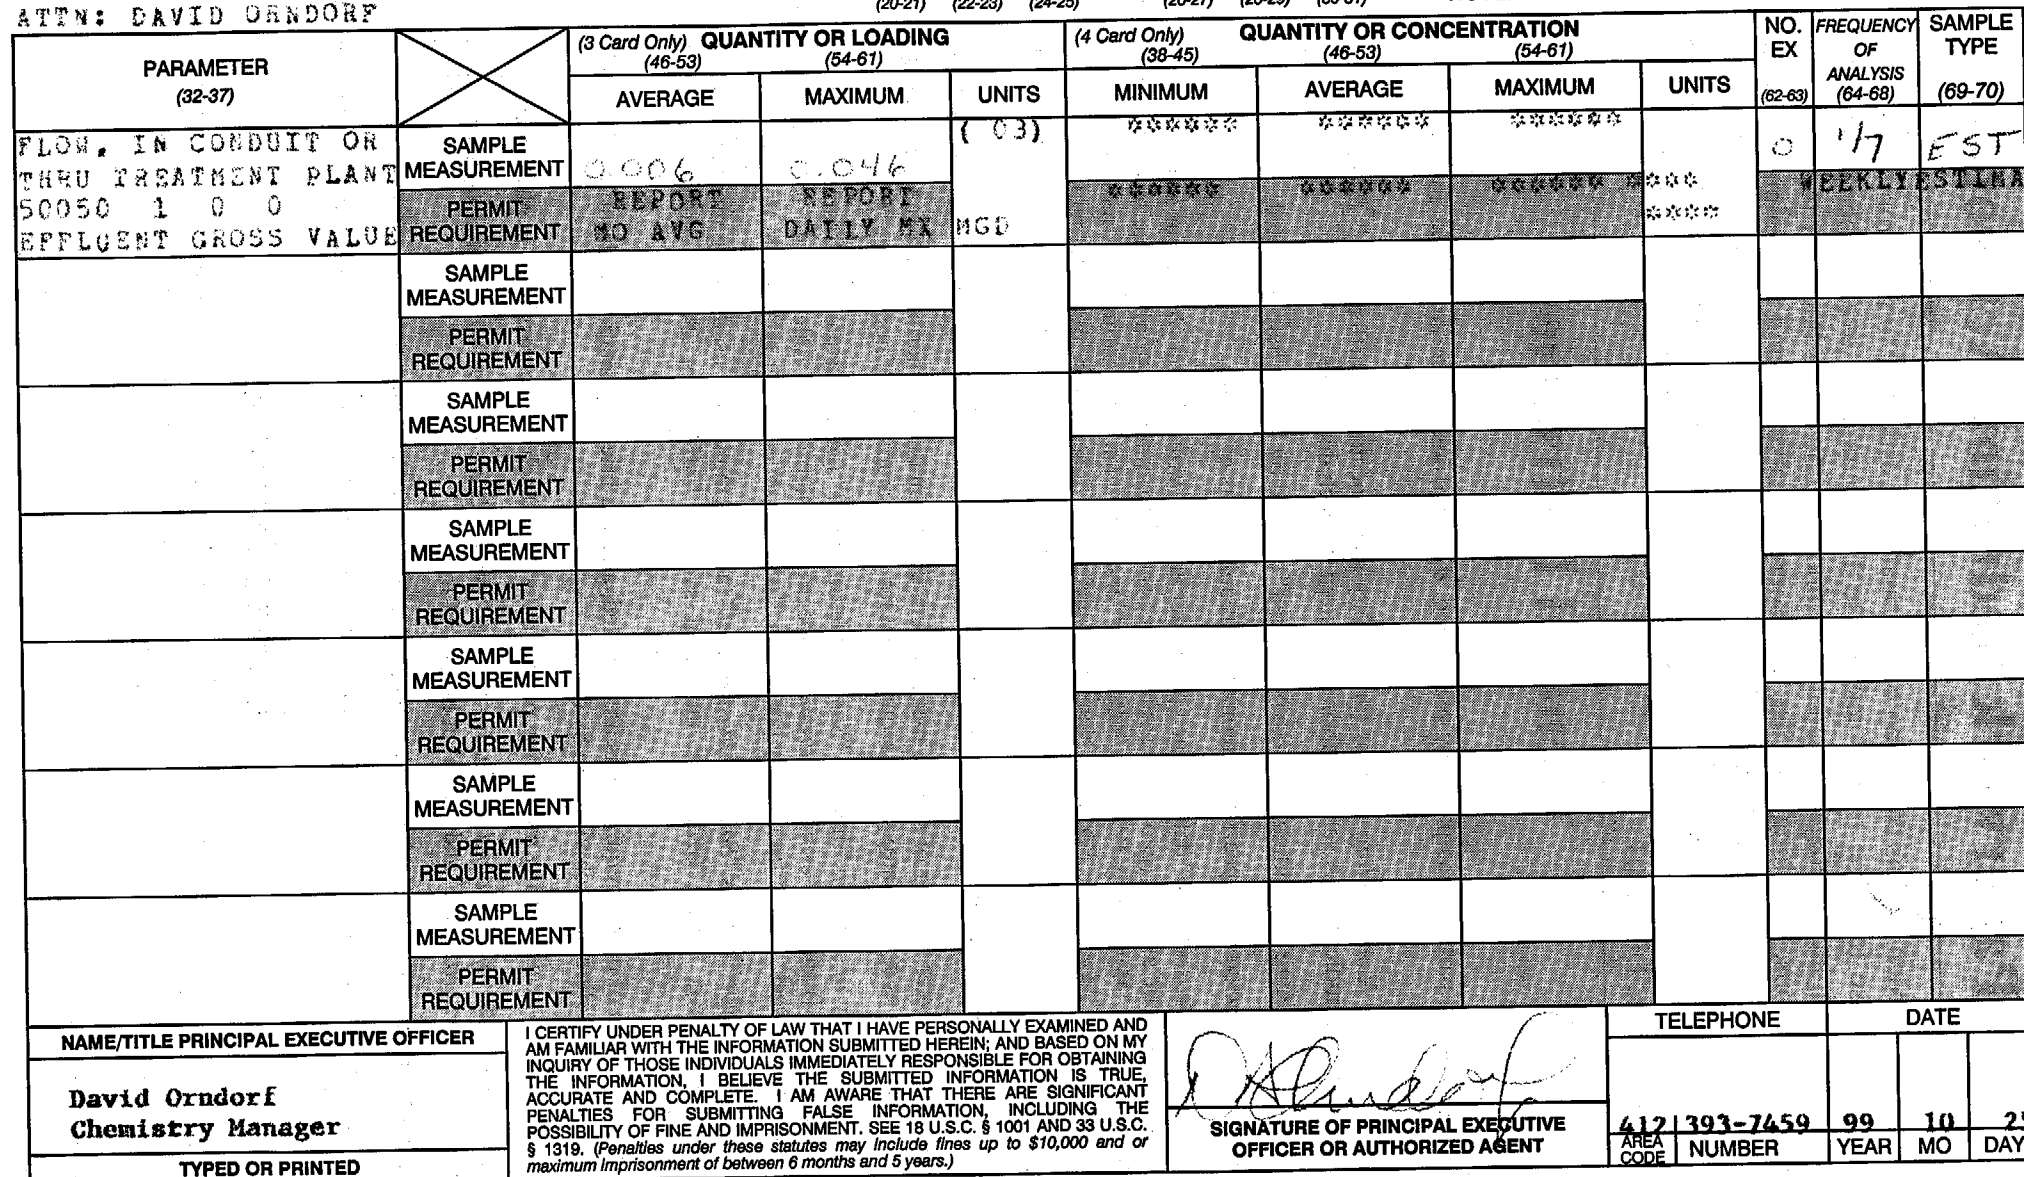 ATTN: DAVID ORNDORF
(20-21) (22-23) (24-25)
PARAMETER
(32-37)
(3 Card Only) QUANTITY OR LOADING
(46-53) (54-61)
AVERAGE MAXIMUM UNITS
(4 Card Only) QUANTITY OR CONCENTRATION
(38-45) (46-53) (54-61)
MINIMUM AVERAGE MAXIMUM UNITS
NO.
EX
(62-63)
FREQUENCY
OF
ANALYSIS
(64-68)
SAMPLE
TYPE
(69-70)
FLOW, IN CONDUIT OR
THRU TREATMENT PLANT
50050 1 0 0
EFFLUENT GROSS VALUE
SAMPLE
MEASUREMENT
0.006 0.046
( 03) ****** ****** ******
0 1/7 EST
PERMIT
REQUIREMENT
REPORT REPORT
MO AVG DAILY MX MGD
****** ****** ****** ****
****
WEEKLY ESTIMA
SAMPLE
MEASUREMENT
PERMIT
REQUIREMENT
SAMPLE
MEASUREMENT
PERMIT
REQUIREMENT
SAMPLE
MEASUREMENT
PERMIT
REQUIREMENT
SAMPLE
MEASUREMENT
PERMIT
REQUIREMENT
SAMPLE
MEASUREMENT
PERMIT
REQUIREMENT
SAMPLE
MEASUREMENT
PERMIT
REQUIREMENT
NAME/TITLE PRINCIPAL EXECUTIVE OFFICER
David Orndorf
Chemistry Manager
TYPED OR PRINTED
I CERTIFY UNDER PENALTY OF LAW THAT I HAVE PERSONALLY EXAMINED AND
AM FAMILIAR WITH THE INFORMATION SUBMITTED HEREIN; AND BASED ON MY
INQUIRY OF THOSE INDIVIDUALS IMMEDIATELY RESPONSIBLE FOR OBTAINING
THE INFORMATION, I BELIEVE THE SUBMITTED INFORMATION IS TRUE,
ACCURATE AND COMPLETE. I AM AWARE THAT THERE ARE SIGNIFICANT
PENALTIES FOR SUBMITTING FALSE INFORMATION, INCLUDING THE
POSSIBILITY OF FINE AND IMPRISONMENT. SEE 18 U.S.C. § 1001 AND 33 U.S.C.
§ 1319. (Penalties under these statutes may include fines up to $10,000 and or
maximum imprisonment of between 6 months and 5 years.)
SIGNATURE OF PRINCIPAL EXECUTIVE
OFFICER OR AUTHORIZED AGENT
TELEPHONE
412 393-7459
AREA
CODE
NUMBER
DATE
99 10
YEAR MO DAY